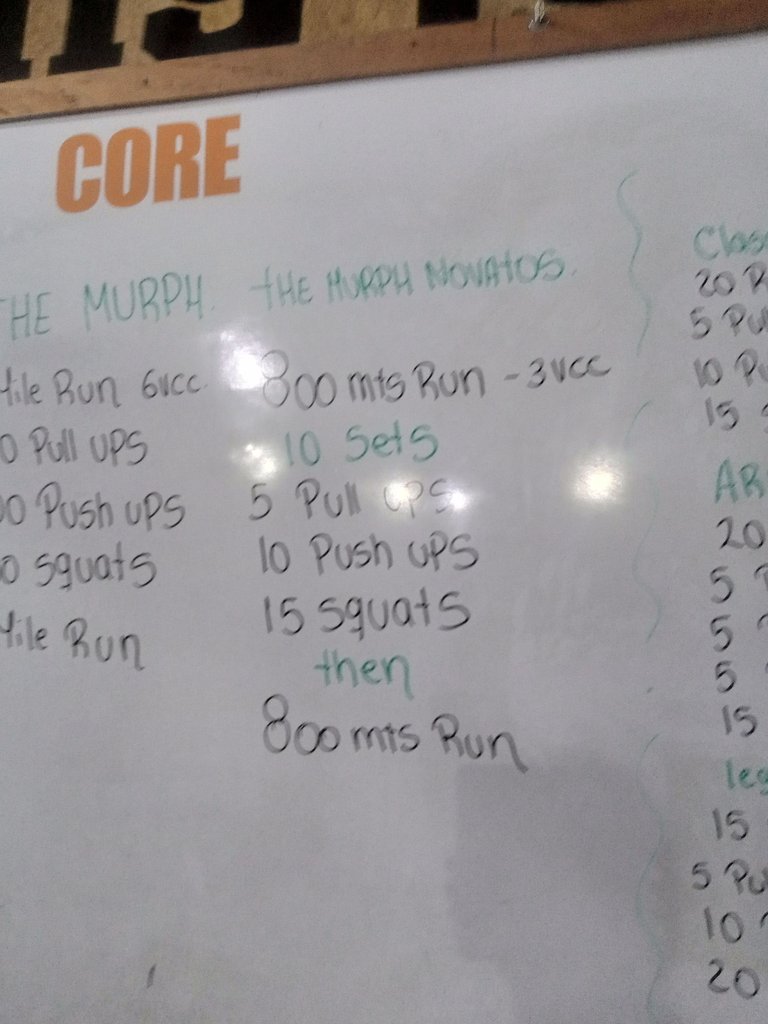 CORE
THE MURPH.
Mile Run 6vcc.
0 Pull UPS
00 Push UPS
0 squats
Mile Run
tHE MURPH NOVATOS.
800 mts Run - 3vcc
10 Sets
5 Pull UPS
10 Push UPS
15 squats
then
800 mts Run
Clas
20 R
5 Pu
10 Pu
15 s
AR
20
5
5
5
15
leg
15
5 Pu
10
20